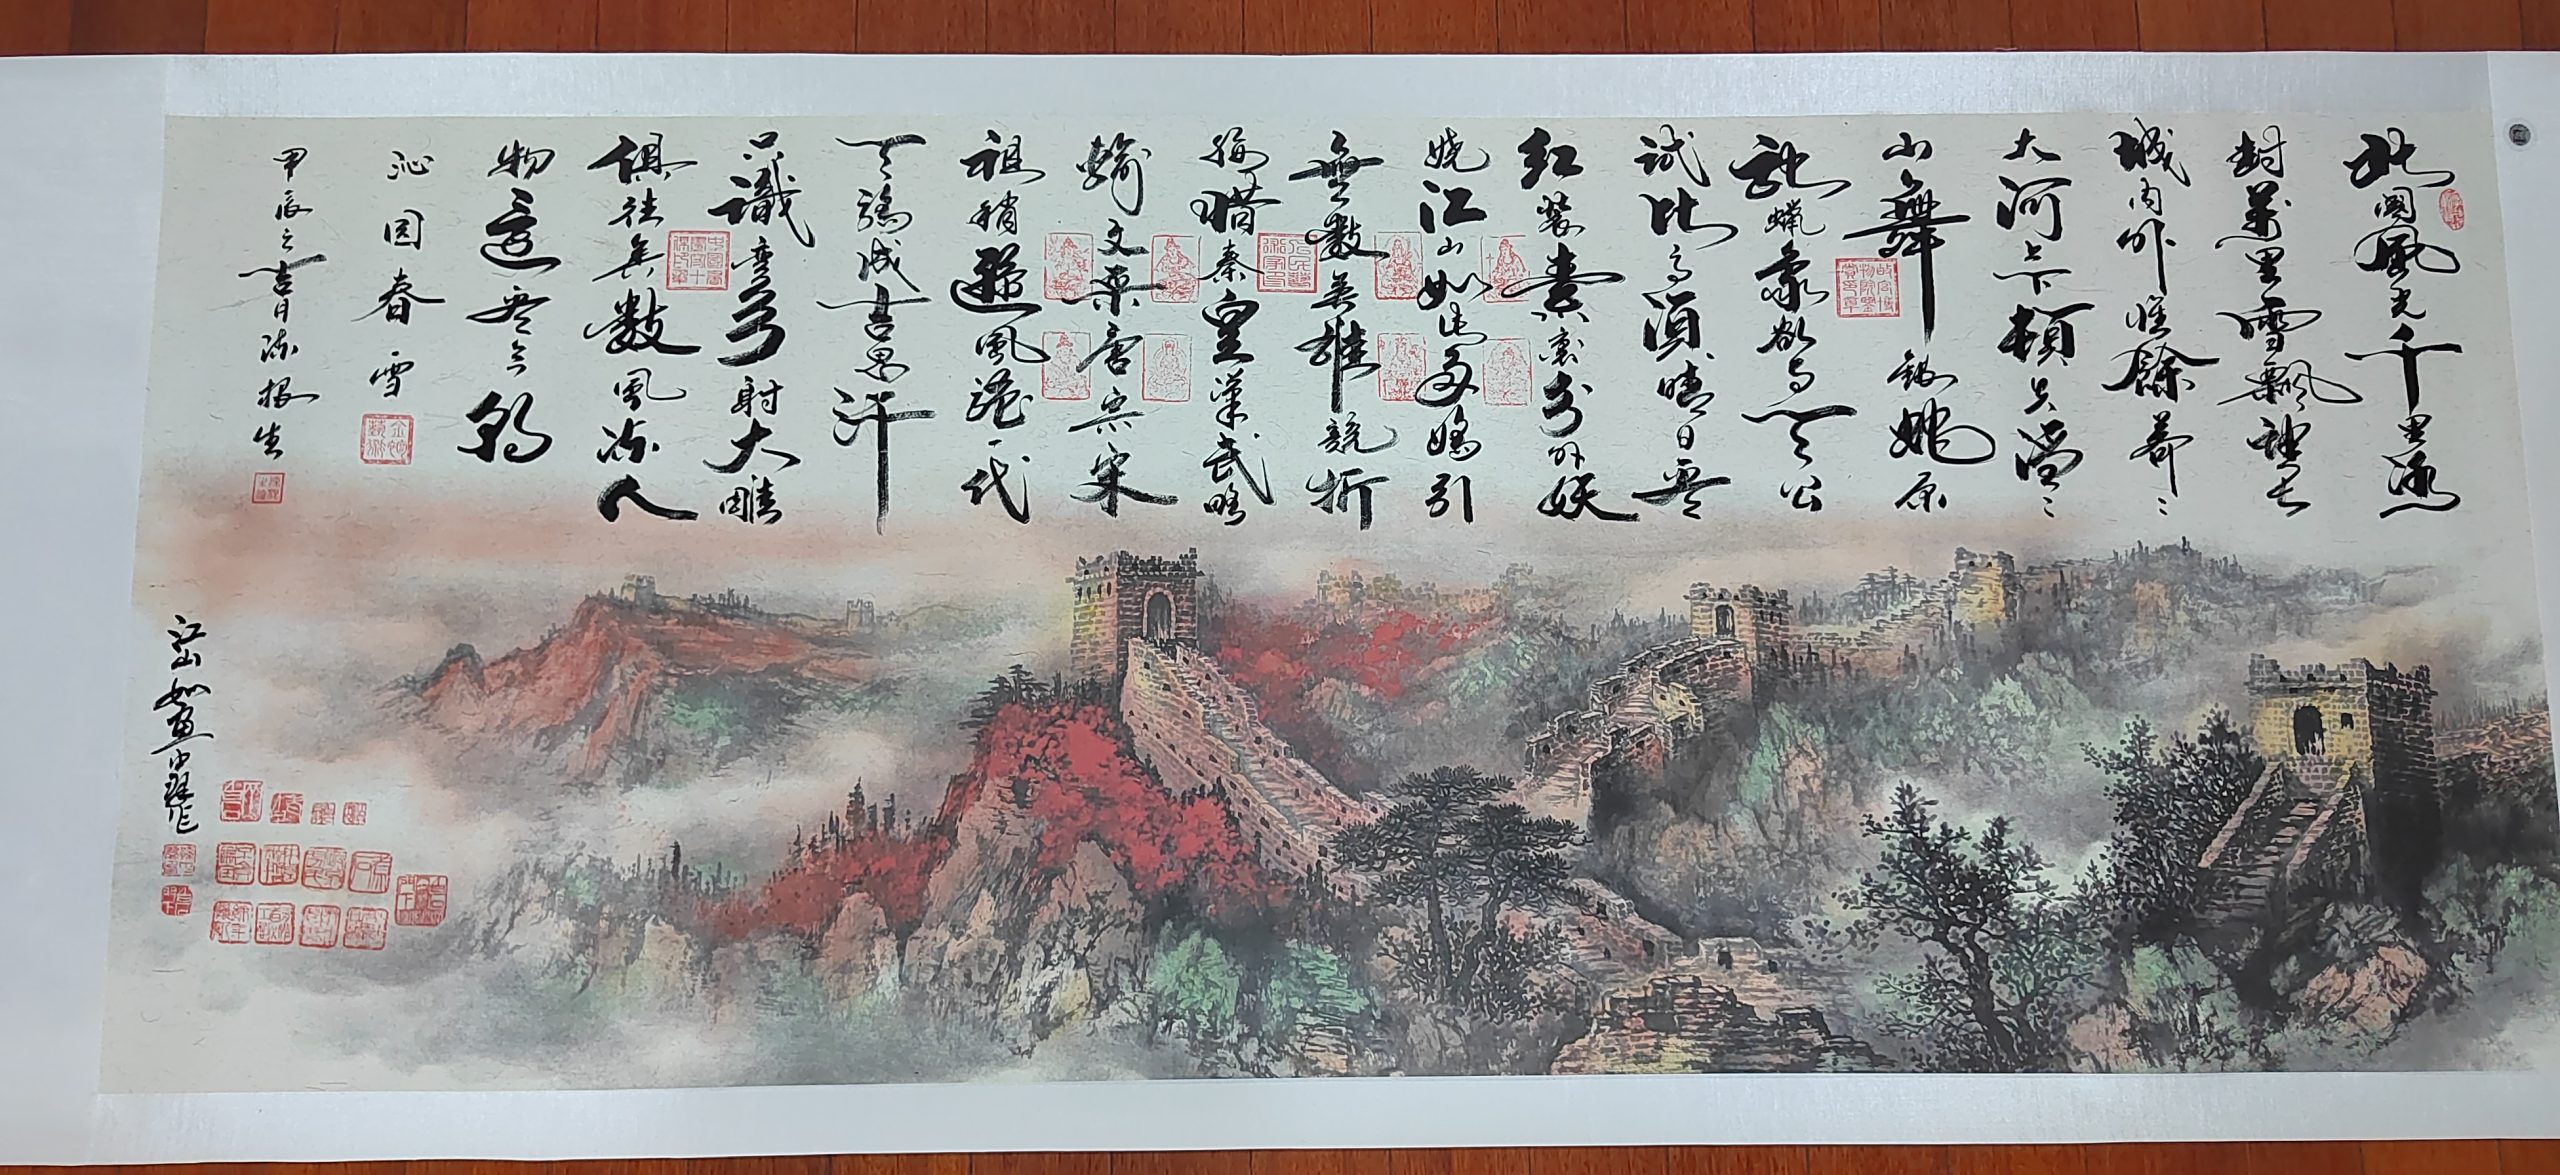 北國風光千里冰
封萬里雪飄望長
城内外惟餘莽〻
大河上下頓失滔〻
山舞銀蛇原
馳蠟象欲与天公
試比高須晴日看
红裝素裹分外妖
娆江山如此多嬌引
無數英雄競折
腰惜秦皇漢武略
輸文采唐宗宋
祖稍遜風騷一代
天驕成吉思汗
只識彎弓射大雕
俱往矣數風流人
物還看今朝
沁园春雪
甲辰之吉日陈根生
江山如畫